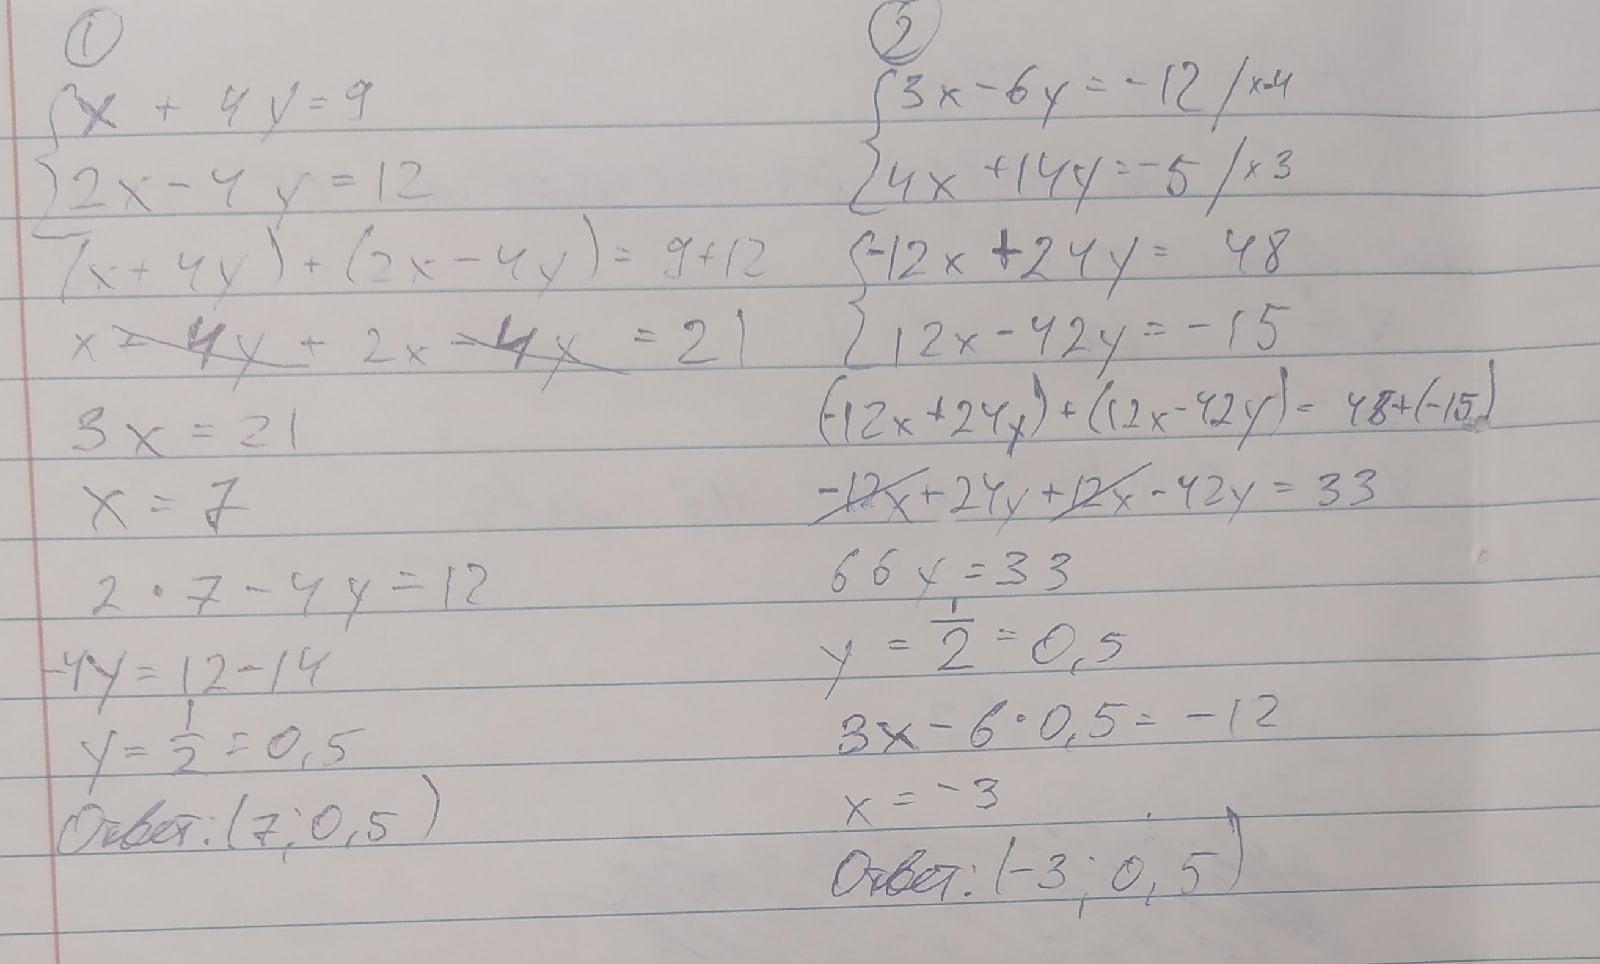 ①
x + 4y = 9
2x - 4y = 12
(x + 4y) + (2x - 4y) = 9 + 12
x - 4y + 2x - 4y = 21
3x = 21
x = 7
2 · 7 - 4y = 12
-4y = 12 - 14
y = 1/2 = 0,5
Ответ: (7; 0,5)
②
3x - 6y = -12 / x-4
4x + 14y = -5 / x3
-12x + 24y = 48
12x - 42y = -15
(-12x + 24y) + (12x - 42y) = 48 + (-15)
-12x + 24y + 12x - 42y = 33
66y = 33
y = 1/2 = 0,5
3x - 6 · 0,5 = -12
x = -3
Ответ: (-3; 0,5)